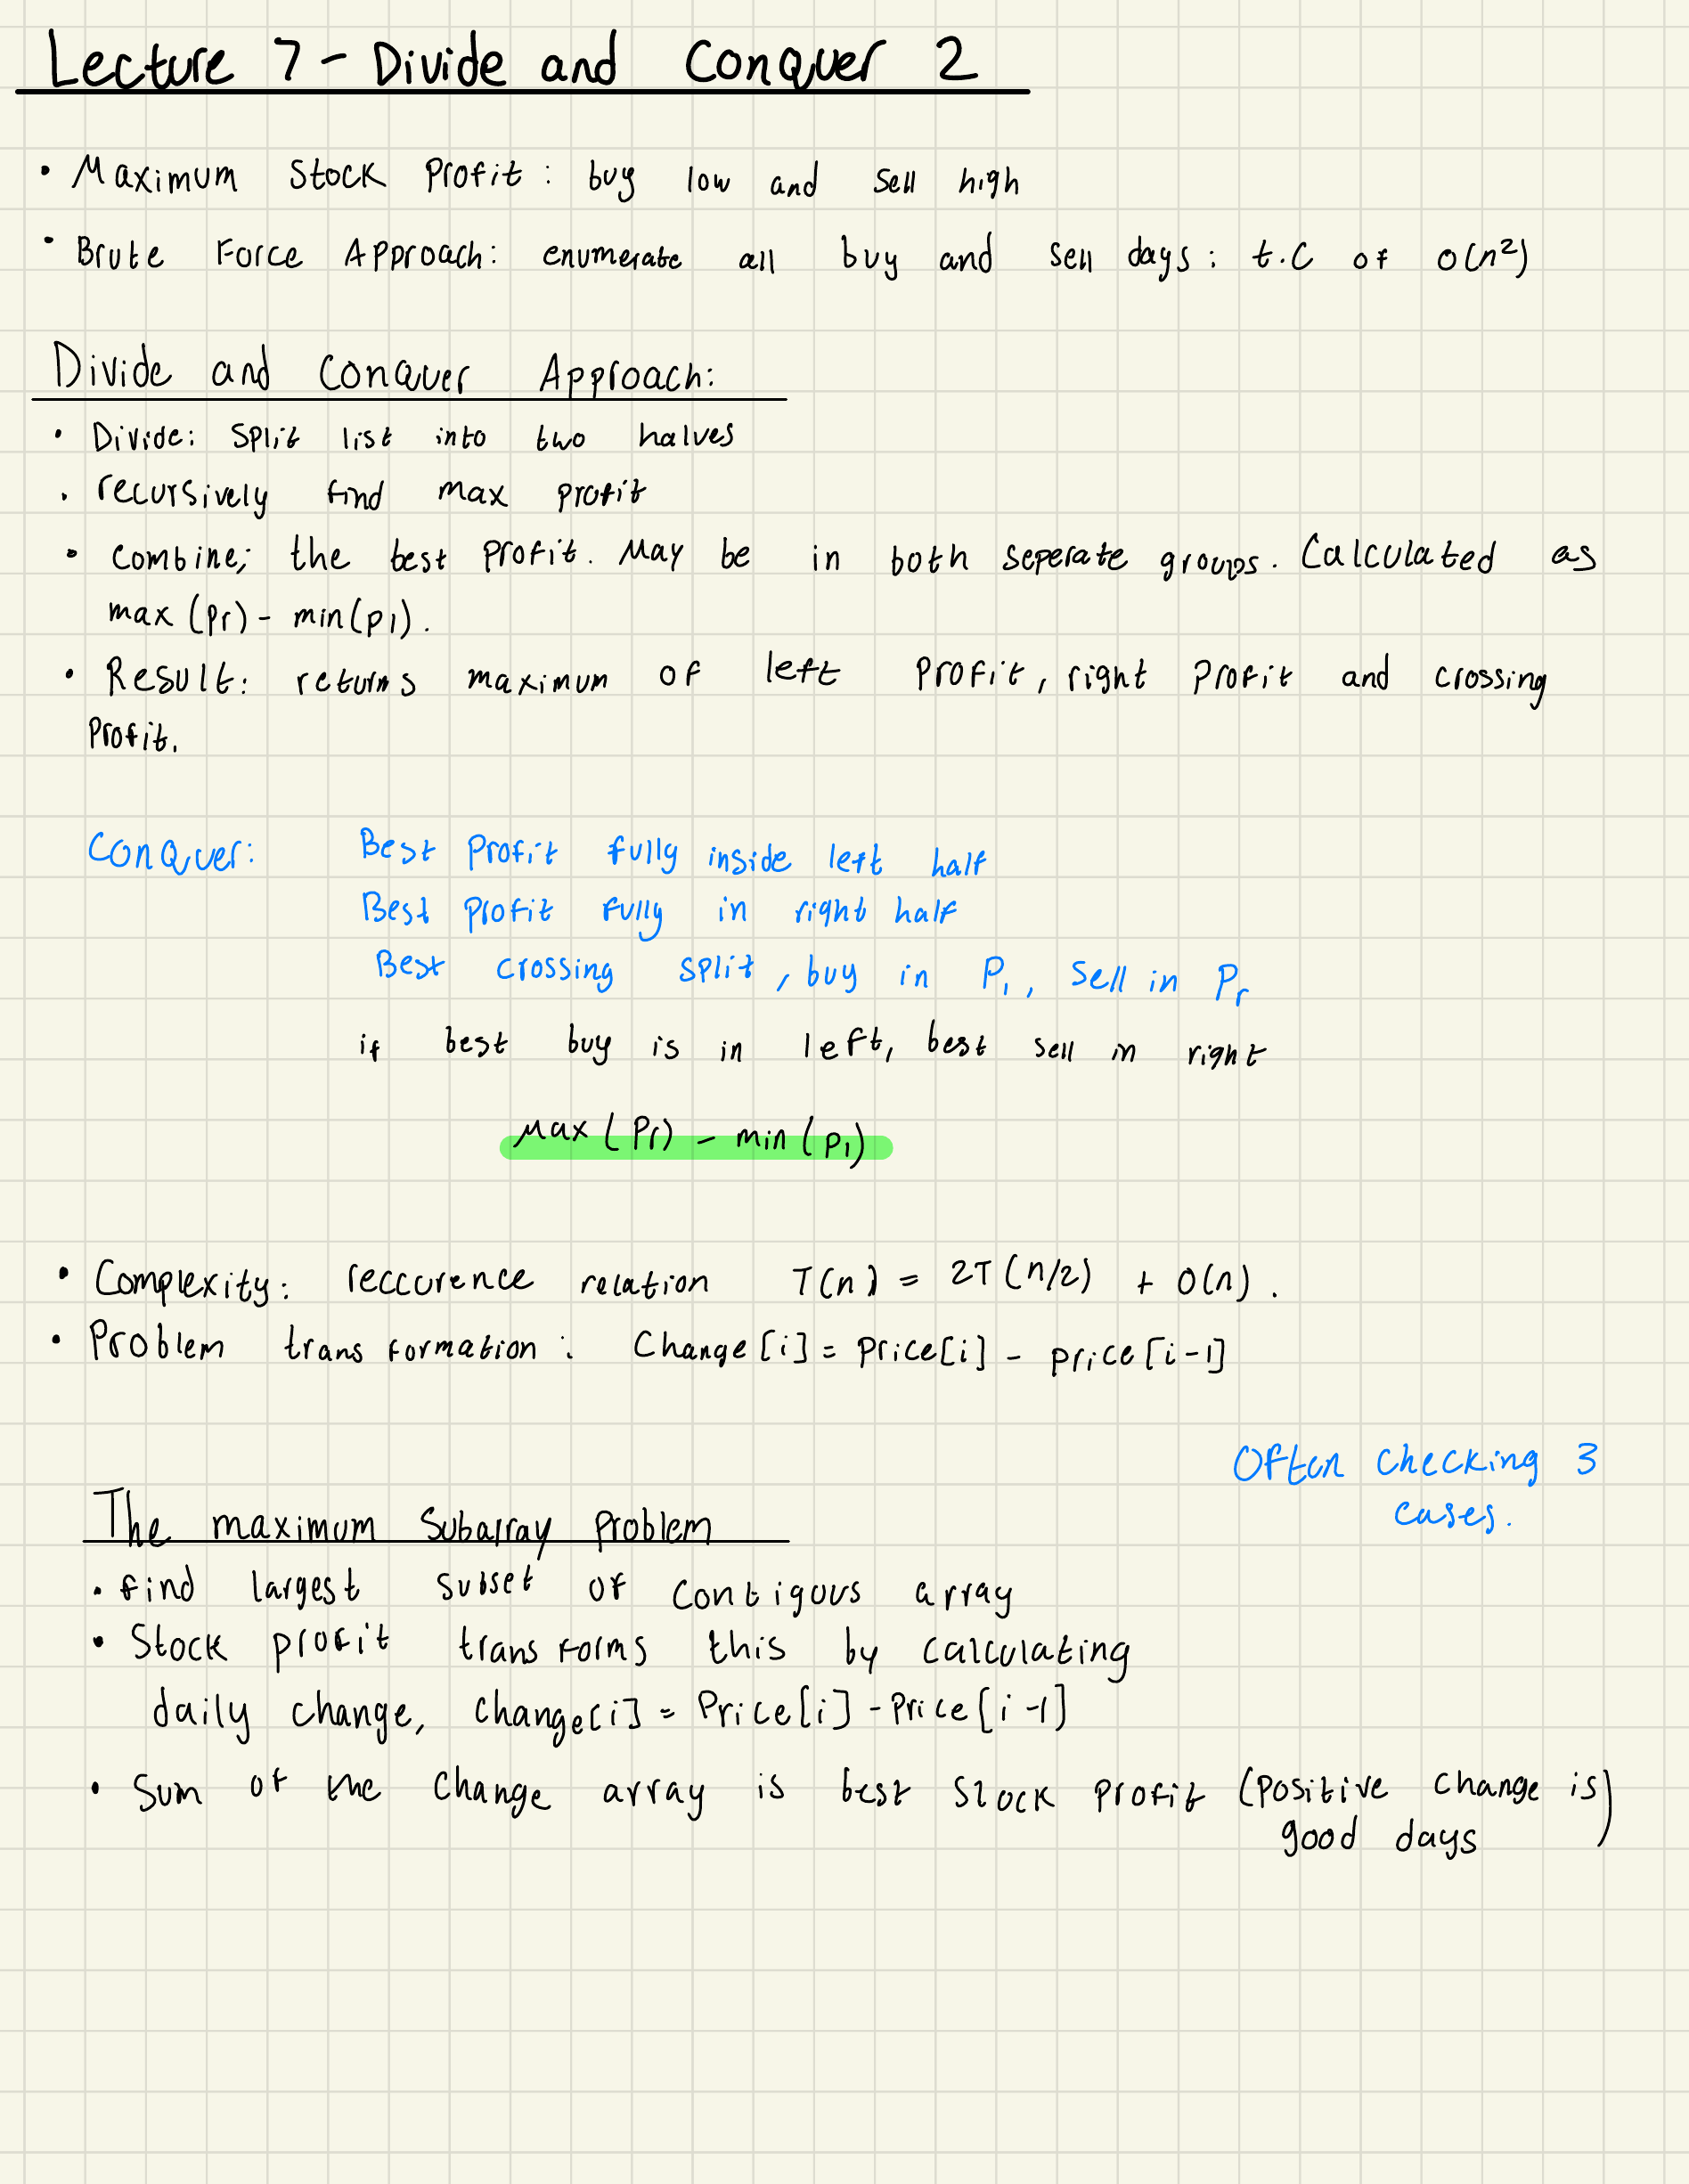 Lecture 7 - Divide and Conquer 2
• Maximum Stock Profit: buy low and sell high
• Brute Force Approach: enumerate all buy and sell days: t.c of O(n²)
Divide and Conquer Approach:
• Divide: split list into two halves
• recursively find max profit
• Combine; the best profit. May be in both seperate groups. Calculated as
max (Pr) - min(Pl).
• Result: returns maximum of left profit, right profit and crossing
Profit.
Conquer: Best Profit fully inside left half
Best profit fully in right half
Best crossing split, buy in Pl, sell in Pr
if best buy is in left, best sell in right
Max (Pr) - min (Pl)
• Complexity: reccurence relation T(n) = 2T(n/2) + O(n).
• Problem transformation: Change[i] = Price[i] - price[i-1]
Often checking 3
cases.
The maximum subarray problem
• find largest subset of contigous array
• Stock profit transforms this by calculating
daily change, change[i] = Price[i] - Price[i-1]
• Sum of the change array is best stock profit (positive change is)
good days